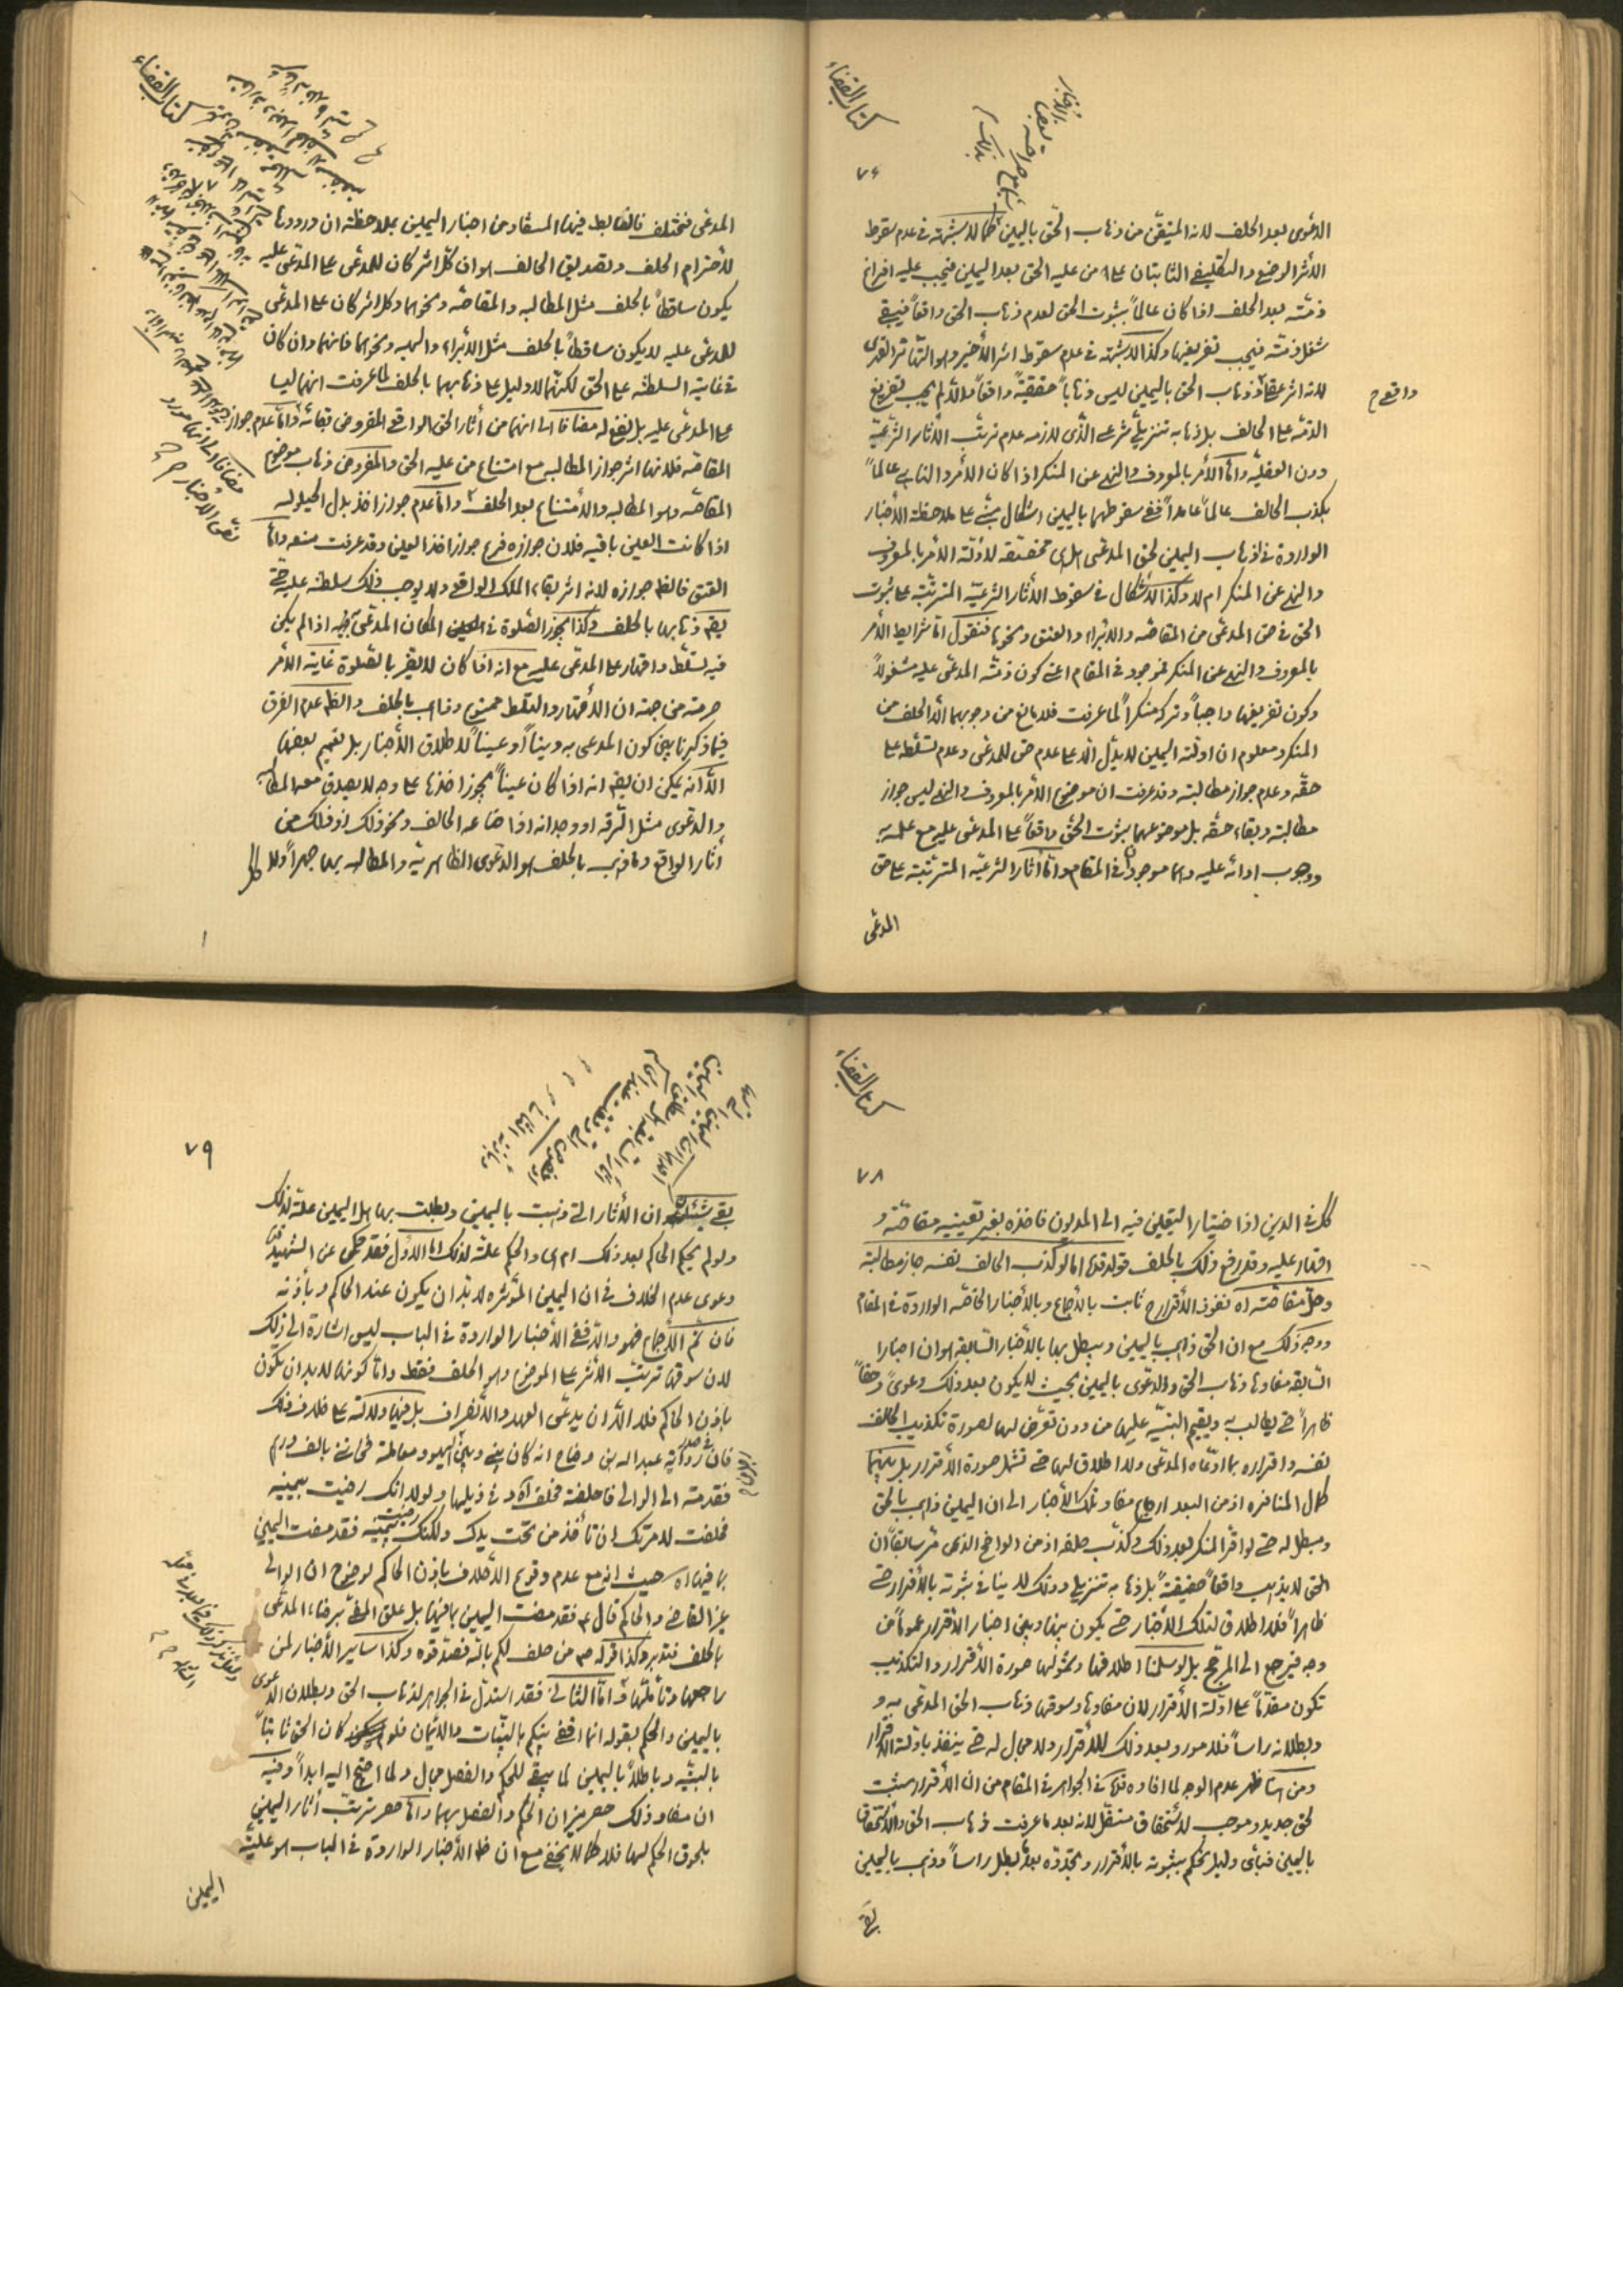 كتاب القضاء
٧٦
الدعوى بعد الحلف لانه المتيقن من ذهاب الحق باليمين كما لا شبهة في عدم سقوط
الاثر الوضعي والتكليفي الثابتان على من عليه الحق بعد اليمين فيجب عليه افراغ
ذمته بعد الحلف اذا كان عالماً بثبوت الحق لعدم ذهاب الحق واقعاً فيبقى
شغل ذمته فيجب تفريغها وكذا لا شبهة في عدم سقوط اثر الأخير وهو التهاتر القهرى
لانه اثر عقلي وذهاب الحق باليمين ليس ذهاباً حقيقيةً واقعاً والا لم يجب تفريغ
الذمة على الحالف بل ذهابه تنزيلي شرعي الذي لازمه عدم ترتب الآثار الشرعية
دون العقلية واما الأمر بالمعروف والنهي عن المنكر اذا كان الأمر والناهي عالماً
بكذب الحالف عالماً عامداً ففي سقوطهما باليمين اشكال ينشئ على ملاحظة الأخبار
الواردة في اذهاب اليمين لحق المدعى هل هي مخصصة لأدلة الامر بالمعروف
والنهي عن المنكر ام لا وكذا الاشكال في سقوط الآثار الشرعية المترتبة على ثبوت
الحق في حق المدعى من المقاصه والابراء والعتق ونحوها فنقول اما شرايط الأمر
بالمعروف والنهي عن المنكر فموجود في المقام اعني كون ذمته المدعى عليه مشغولاً
وكون تفريغها واجباً وتركه منكراً لما عرفت فلا مانع من وجوبهما الا الحلف من
المنكر ومعلوم ان ادلة اليمين لا يدل الا على عدم حق للمدعى وعدم تسلطه على
حقه وعدم جواز مطالبته وقد عرفت ان موضوع الامر بالمعروف والنهي ليس جواز
مطالبته وبقاء حقه بل موضوعهما بثبوت الحق واقعاً على المدعى عليه مع علمه به
ووجوب ادائه عليه وهما موجودان في المقام واما آثار الشرعية المترتبة على حق
المدعى
واقعي ح
كتاب القضاء
المدعى فمختلف فالضابط فيها المستفاد من اخبار اليمين بملاحظة ان ورودها
للأحترام الحلف وتصديق الحالف هو ان كل اثر كان للمدعى على المدعى عليه
يكون ساقطاً بالحلف مثل المطالبه والمقاصه ونحوهما وكل اثر كان على المدعى
للمدعى عليه لا يكون ساقطاً بالحلف مثل الأبراء والهبه ونحوهما فانهما وان كان
في غاية السلطنه على الحق لكنهما لا دليل على ذهابهما بالحلف لما عرفت انهما ليسا
على المدعى عليه بل نفع له مضافا الى انهما من آثار الحق الواقعي المفروض بقائه واما عدم جواز
المقاصه فلانها اثر جواز المطالبه مع امتناع من عليه الحق والمفروض ذهاب موضوع
المقاصه وهو المطالبه والأمتناع بعد الحلف واما عدم جواز اخذ بدل الحيلوله
اذا كانت العين باقيه فلان جوازه فرع جواز اخذ العين وقد عرفت منعه واما
العتق فالظ جوازه لانه اثر بقاء الملك الواقعي ولا يوجب ذلك سلطنه عليه حتى
يقع ذهابها بالحلف وكذا يجوز الصلوة في المكان المدعى به اذا لم يكن
فيه تسلط واقهار على المدعى عليه مع انه اذا كان لا يقر بالصلوة غاية الأمر
حرمته من جهة ان الأقهار والتسلط ممنوع وذاهب بالحلف والظ عدم الفرق
فيما ذكرنا بين كون المدعى به ديناً او عيناً لأطلاق الأخبار بل تعميم بعضها
الا انه يمكن ان يقع انه اذا كان عيناً يجوز اخذها على وجه لا يصدق معه المطالبة
والدعوى مثل السرقه او وجدانه اذا ضاعه الحالف ونحو ذلك اذ ذلك من
آثار الواقع وما ذهب بالحلف هو الدعوى الظاهرية والمطالبه بها جهراً ولا
كتاب القضاء
٧٨
كل في الدين اذا ختيار التعيين فيه الى المديون فاخذه بغير تعيينه مقاصته و
اقهار عليه وقد رفع ذلك بالحلف قوله قده اما لو كذب الحالف نفسه جاز مطالبته
وحل مقاصته اه نفوذ الأقرار ح ثابت بالأجماع وبالأخبار الخاصه الواردة في المقام
ووجه ذلك مع ان الحق ذاهب باليمين ويبطل بها بالأخبار السابقه هو ان اخبارا
السابقه مفادها ذهاب الحق والدعوى باليمين بحيث لا يكون بعد ذلك دعوى وحقاً
ظاهراً حتى يطالب به ويقيم البينة عليها من دون تعرض لها لصورة تكذيب الحالف
نفسه واقراره بما ادعاه المدعى ولا اطلاق لها حتى تشمل صورة الأقرار بل بينهما
كمال المنافره اذ من البعد ارجاع مفاد تلك الأخبار الى ان اليمين ذاهب بالحق
ومبطل له حتى لو اقر المنكر بعد ذلك وكذب حلفه اذ من الواضح الذى مر سابقاً ان
الحق لا يذهب واقعاً حقيقةً بل ذهابه تنزيلي وذلك لا ينافي ثبوته بالأقرار حتى
ظاهراً فلا اطلاق لتلك الأخبار حتى يكون بينها وبين اخبار الأقرار عموماً من
وجه فيرجع الى المرجح بل لو سلمنا اطلاقها وشمولها صورة الأقرار والتكذيب
تكون مقدماً على ادلة الأقرار لان مفادها وسوقها ذهاب الحق المدعى به و
وبطلانه راساً فلا مورد بعد ذلك للأقرار ولا مجال له حتى ينفذ بادلة الأقرار
ومن هنا ظهر عدم الوجه لما افاده قده في الجواهر في المقام من ان الأقرار سبب
لحق جديد وموجب لأستحقاق مستقل لانه بعد ما عرفت ذهاب الحق والاستحقاق
باليمين فبأى دليل يحكم بثبوته بالأقرار وتجدده بعد بطل راساً وذهب باليمين
بقي
٧٩
بقي شئ ان الأثار التي ذهبت باليمين وبطلت بها هل اليمين علة لذلك
ولو لم يحكم الحاكم بعد ذلك ام هي والحكم علة لذلك اما الأول فقد حكى عن الشهيد
دعوى عدم الخلاف في ان اليمين المؤثره لا بد ان يكون عند الحاكم وبأذنه
فان تم الأجماع فهو والا ففي الأخبار الواردة في الباب ليس اشارة الى ذلك
لان سوقها ترتيب الأثر على الموضوع وهو الحلف فقط واما كونها لا بد ان يكون
باذن الحاكم فلا الا ان يدعى العهد والأنصراف بل فيها دلالة على خلاف ذلك
فان في صدر رواية عبد اله بن وضاح انه كان بيني وبين اليهود معاملة فخانني بالف درهم
فقدمته الى الوالي فاحلفته فحلف اه وفي ذيلها ولولا انك رضيت بيمينه
فحلفت لامرتك ان تأخذ من تحت يدك ولكنك رضيت بيمينه فقد مضت اليمين
بما فيها اه حيث انه مع عدم وقوع الأحلاف باذن الحاكم لوضوح ان الوالي
غير القاضي والحاكم قال ع فقد مضت اليمين بما فيها بل علق المضي برضاء المدعى
بالحلف فتدبر وكذا قوله ص من حلف لكم بالله فصدقوه وكذا ساير الأخبار لمن
راجعها وتأملها واما الثاني فقد استدل في الجواهر لذهاب الحق وبطلان الدعوى
باليمين والحكم بقوله انما اقضي بينكم بالبينات والأيمان فلو كان الحق ثابتاً
بالبينه وباطلاً باليمين لما يبقى للحكم والفصل مجال ولما احتج اليه ابداً وفيه
ان مفاد ذلك حصر ميزان الحكم والفصل بهما واما حصر ترتب آثار اليمين
بلحوق الحكم لها فلا كما لا يخفى مع ان ظ الأخبار الواردة في الباب هو علية
اليمين